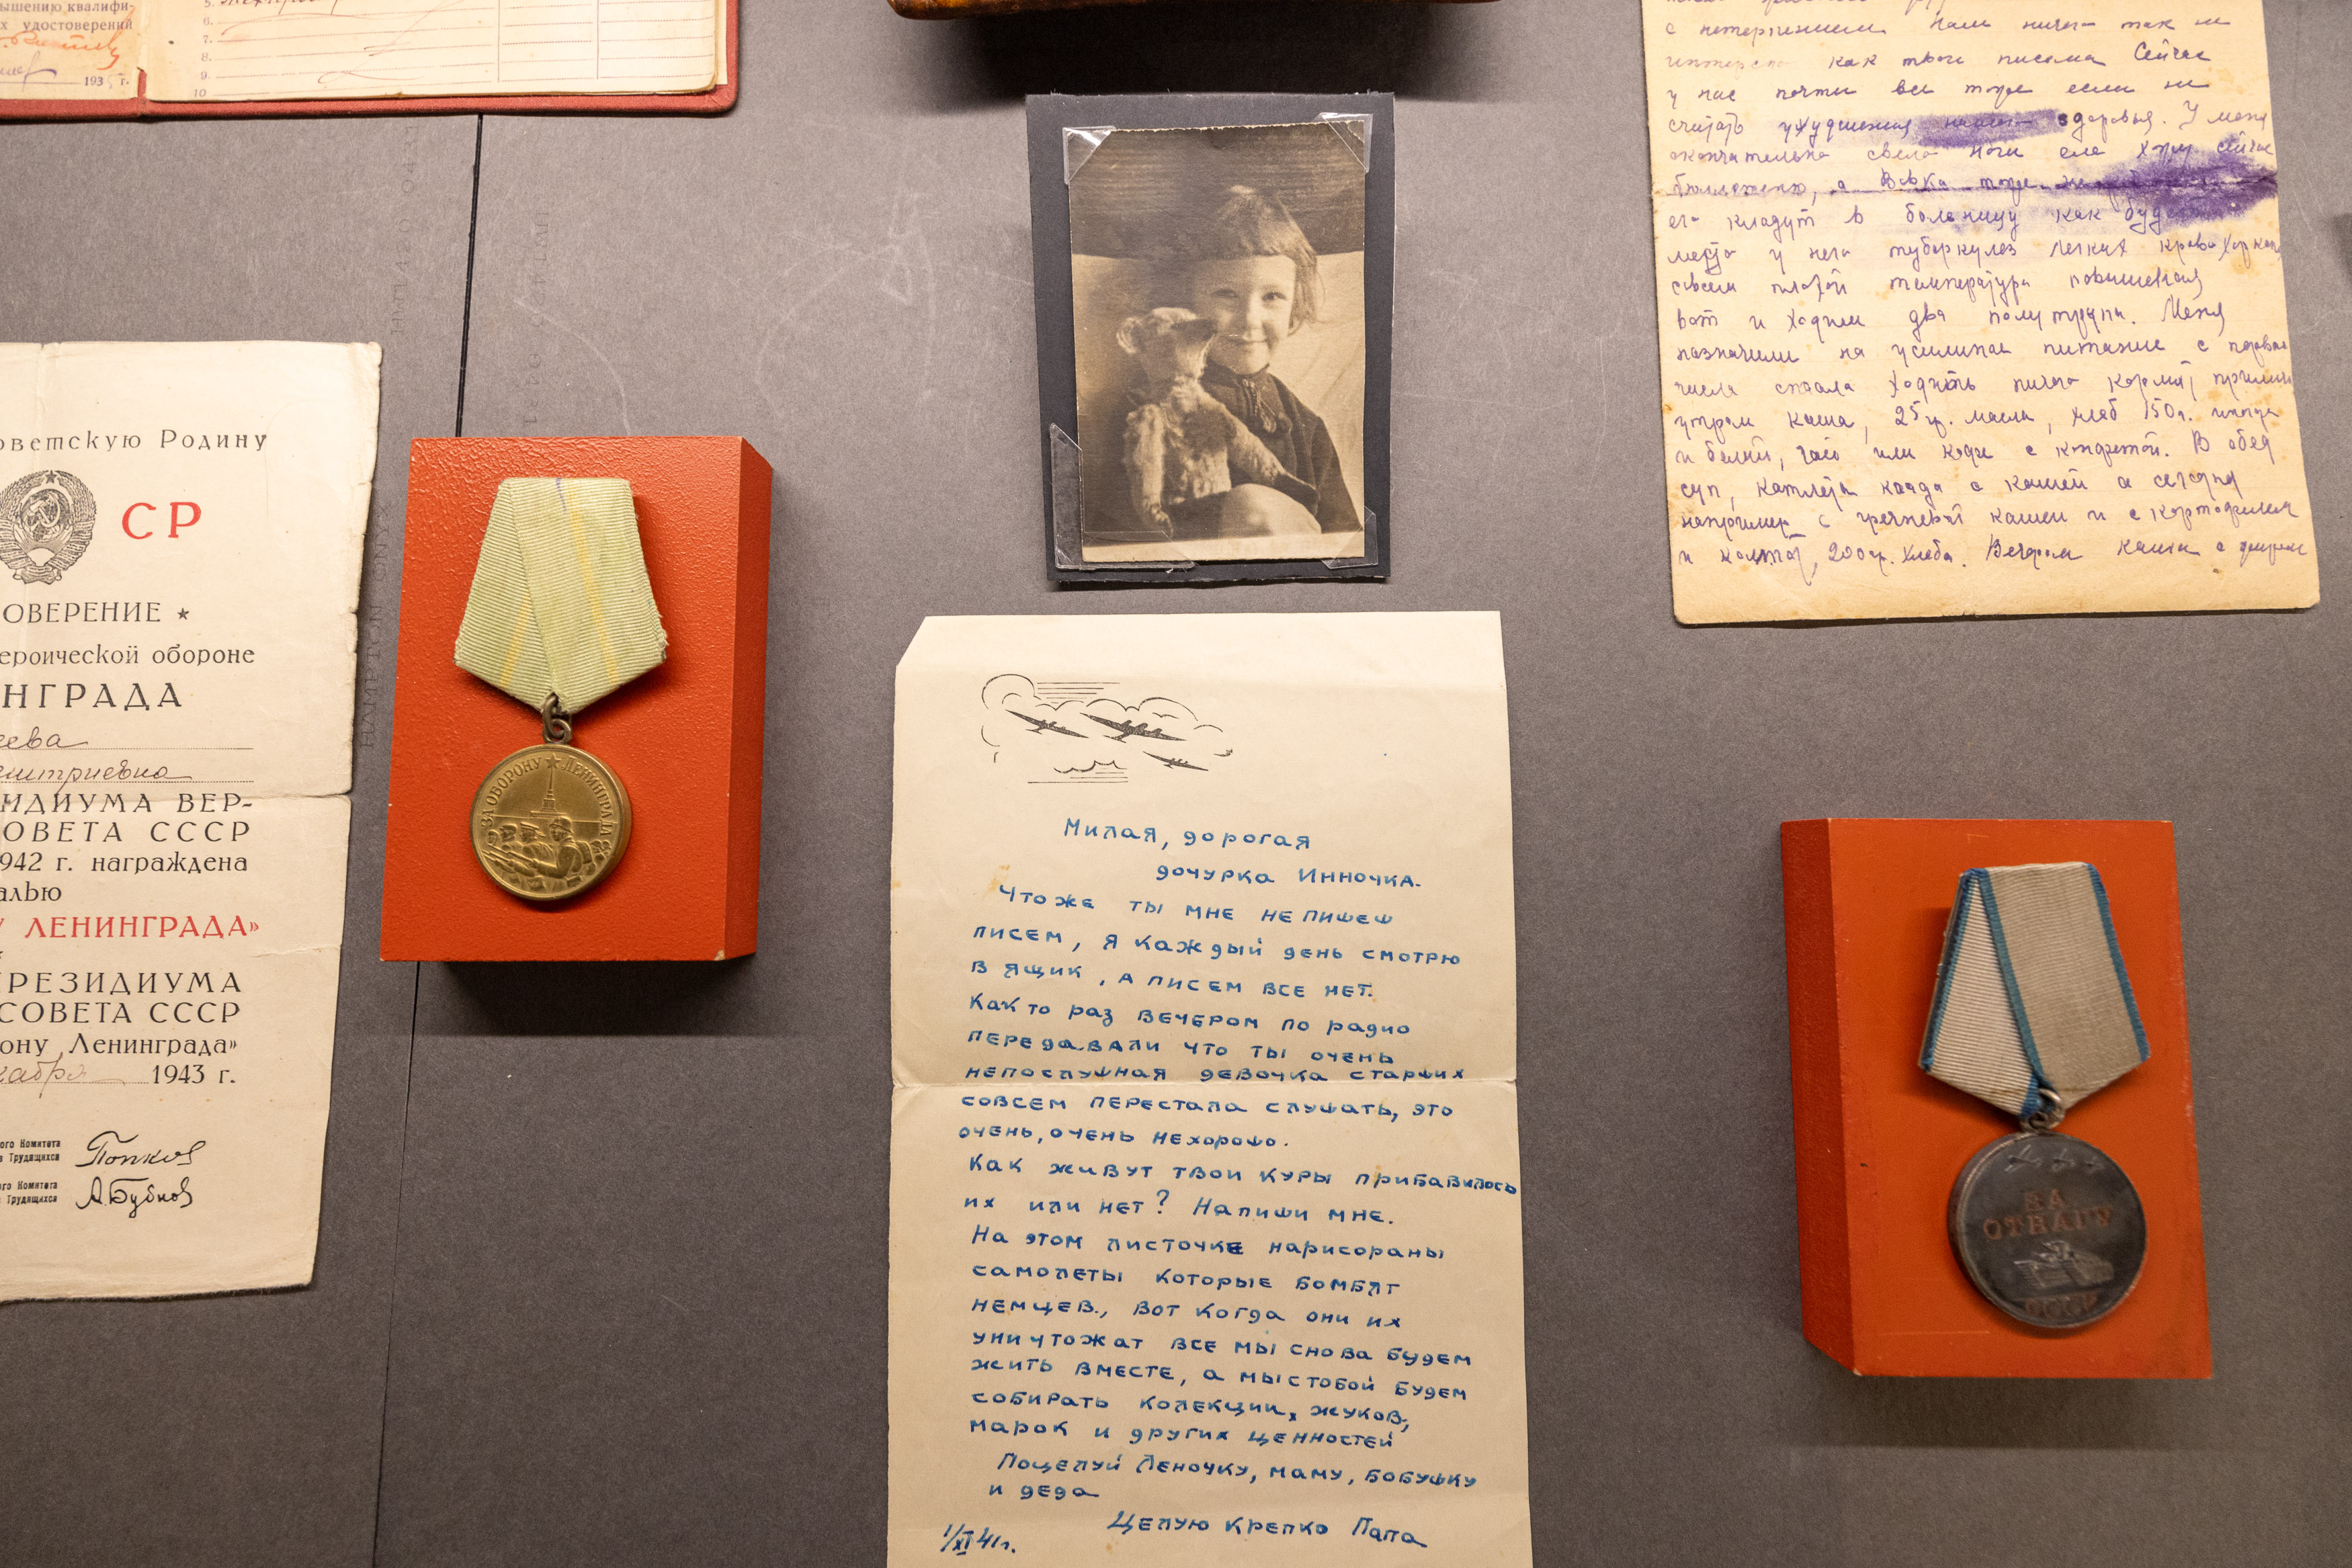 ышению квалифи-
х удостоверений
193 г.
5.
6.
7.
8.
9
10
оветскую Родину
СР
ОВЕРЕНИЕ ★
ероической обороне
НГРАДА
еева
митриевна
ИДИУМА ВЕР-
ОВЕТА СССР
942 г. награждена
алью
У ЛЕНИНГРАДА»
РЕЗИДИУМА
СОВЕТА СССР
ону Ленинграда»
кабря 1943 г.
ого Комитета
в Трудящихся
Попков
ого Комитета
в Трудящихся
А.Бубнов
ЗА ОБОРОНУ ★ ЛЕНИНГРАДА
Милая, дорогая
дочурка Инночка.
Чтоже ты мне не пишеш
писем, я каждый день смотрю
в ящик, а писем все нет.
Как то раз вечером по радио
передавали что ты очень
непослушная девочка старших
совсем перестала слушать, это
очень, очень нехорошо.
Как живут твои куры прибавилось
их или нет? Напиши мне.
На этом листочке нарисораны
самолеты которые бомбят
немцев., вот когда они их
уничтожат все мы снова будем
жить вместе, а мы стобой будем
собирать колекции, жуков,
марок и других ценностей
Поцелуй Леночку, маму, бобушку
и деда
Целую крепко Папа
1/XI 41г.
с нетерпением Нам ничего так не
как твои письма Сейчас
у нас почти все тоже если не
считать ухудшения нашего здоровья. У меня
окончательно свело ноги еле хожу сейчас
бюллетеню, а Вовка тоже
его кладут в больницу как
места у него туберкулез легких
совсем плохой температура повышенная
вот и ходим два полутрупа. Меня
назначили на усиленое питание с первого
числа стала ходить ничего кормят прилично
утром каша, 25 гр. масла, хлеб 150 г. иногда
и белый, чай или кофе с конфетой. В обед
суп, котлета когда с кашей а сегодня
например с гречневой кашей и с картофелем
и 200 гр. хлеба. Вечером каша с
ЗА
ОТВАГУ
СССР